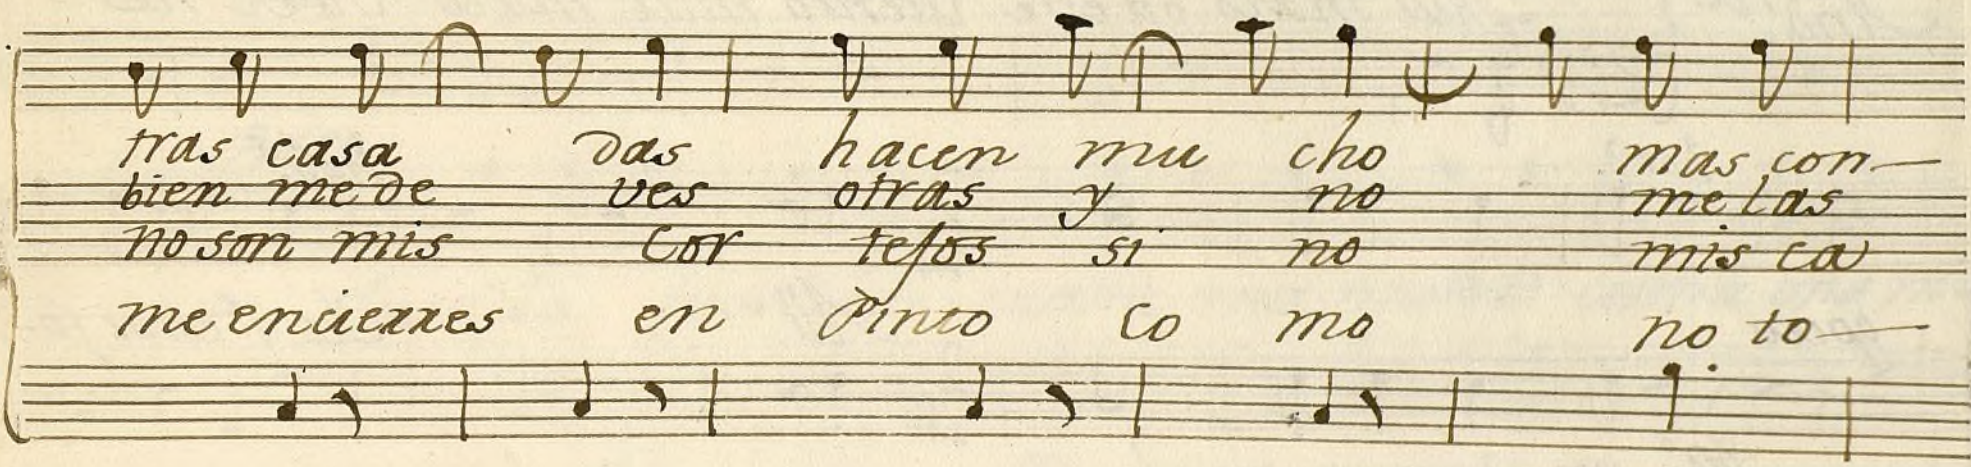 tras casa das hacen mu cho mas con—
bien me de ves otras y no me las
no son mis Cor tejos si no mis ca
me encierres en Pinto Co mo no to—